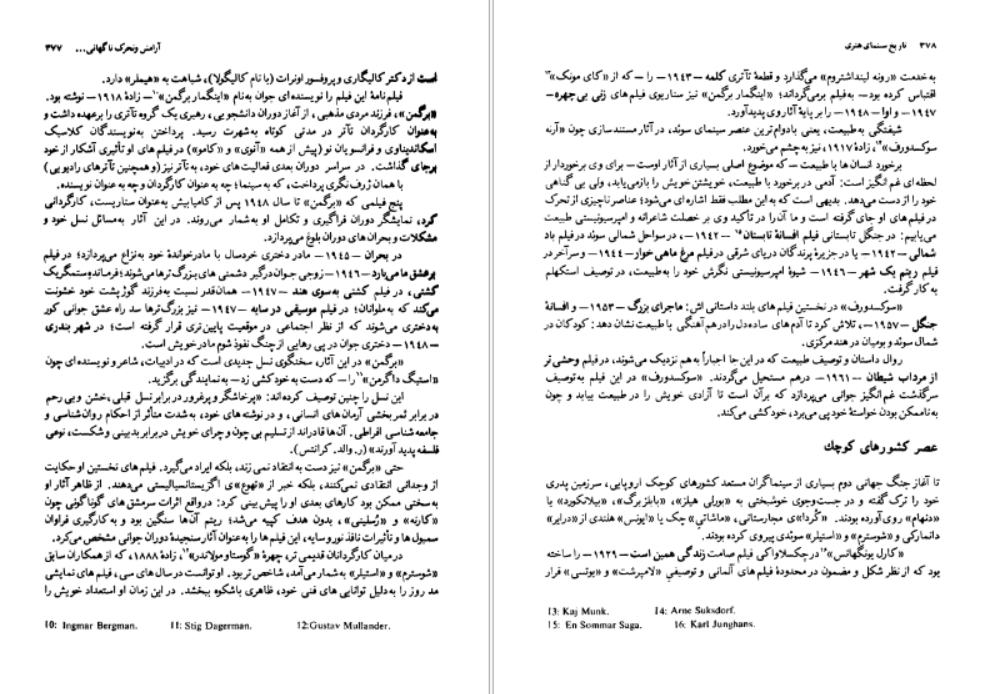 آرامش وتحرک ناگهانی... ۳۷۷
است از دکتر کالیگاری و پروفسور اونرات (با نام کالیگولا)، شباهت به «هیملر» دارد.
فیلم‌نامهٔ این فیلم را نویسنده‌ای جوان به‌نام «اینگمار برگمن»۱۰ – زادهٔ ۱۹۱۸ – نوشته بود.
«برگمن»، فرزند مردی مذهبی، از آغاز دوران دانشجویی، رهبری یک گروه تآتری را برعهده داشت و
به‌عنوان کارگردان تآتر در مدتی کوتاه به‌شهرت رسید. پرداختن به‌نویسندگان کلاسیک
اسکاندیناوی و فرانسویان نو (پیش از همه «آنوی» و «کامو») در فیلم‌های او تأثیری آشکار از خود
برجای گذاشت. در سراسر دوران بعدی فعالیت‌های خود، به‌تآتر نیز (و همچنین تآترهای رادیویی)
با همان ژرف‌نگری پرداخت، که به‌سینما؛ چه به‌عنوان کارگردان وچه به‌عنوان نویسنده.
پنج فیلمی که «برگمن» تا سال ۱۹۴۸ پس از کامیابیش به‌عنوان سناریست، کارگردانی
کرد، نمایشگر دوران فراگیری و تکامل او به‌شمار می‌روند. در این آثار به‌مسائل نسل خود و
مشکلات و بحران‌های دوران بلوغ می‌پردازد.
در بحران – ۱۹۴۵ – مادر دختری خردسال با مادرخواندهٔ خود به‌نزاع می‌پردازد؛ در فیلم
برعشق ما می‌بارد – ۱۹۴۶ – زوجی جوان درگیر دشمنی های بزرگ‌ترها می‌شوند؛ فرمانده ستمگر یک
کشتی، در فیلم کشتی به‌سوی هند – ۱۹۴۷ – همان‌قدر نسبت به‌فرزند گوژپشت خود خشونت
می‌کند که به‌ملوانان؛ در فیلم موسیقی در سایه – ۱۹۴۷ – نیز بزرگ‌ترها سد راه عشق جوانی کور
به‌دختری می‌شوند که از نظر اجتماعی در موقعیت پایین‌تری قرار گرفته است؛ در شهر بندری
– ۱۹۴۸ – دختری جوان در پی رهایی از چنگ نفوذ شوم مادر خویش است.
«برگمن» در این آثار، سخنگوی نسل جدیدی است که در ادبیات، شاعر و نویسنده‌ای چون
«استیگ داگرمن»۱۱ را – که دست به‌خودکشی زد – به‌نمایندگی برگزید.
این نسل را چنین توصیف کرده‌اند: «پرخاشگر و پرغرور در برابر نسل قبلی، خشن و بی رحم
در برابر ثمربخشی آرمان‌های انسانی، و در نوشته‌های خود، به‌شدت متأثر از احکام روان‌شناسی و
جامعه‌شناسی افراطی. آن‌ها قادراند از تسلیم بی چون و چرای خویش در برابر بدبینی و شکست، نوعی
فلسفه پدید آورند» (ر. والد. کرانتس).
حتی «برگمن» نیز دست به‌انتقاد نمی زند، بلکه ایراد می‌گیرد. فیلم‌های نخستین او حکایت
از وجدانی انتقادی نمی‌کنند، بلکه خبر از «تهوع»ی اگزیستانسیالیستی می‌دهند. از ظاهر آثار او
به‌سختی ممکن بود کارهای بعدی او را پیش‌بینی کرد: درواقع اثرات سرمشق‌های گوناگونی چون
«کارنه» و «رُسلینی»، بدون هدف کپیه می‌شد؛ ریتم آن‌ها سنگین بود و به‌کارگیری فراوان
سمبول‌ها و تأثیرات نافذ نور و سایه، این فیلم‌ها را به‌عنوان آثار سنجیدهٔ دوران جوانی مشخص می‌کرد.
در میان کارگردانان قدیمی تر، چهرهٔ «گوستاو مولاندر»۱۲، زادهٔ ۱۸۸۸، که از همکاران سابق
«شوسترم» و «استیلر» به‌شمار می‌آمد، شاخص تر بود. او توانست در سال‌های سی، فیلم‌های نمایشی
مد روز را به‌دلیل توانایی های فنی خود، ظاهری باشکوه ببخشد. در این زمان او استعداد خویش را
10: Ingmar Bergman. 11: Stig Dagerman. 12:Gustav Mullander.
۳۷۸ تاریخ سینمای هنری
به‌خدمت «رونه لینداشتروم» می‌گذارد و قطعهٔ تآتری کلمه – ۱۹۴۳ – را – که از «کای مونک»۱۳
اقتباس کرده بود – به‌فیلم برمی‌گرداند؛ «اینگمار برگمن» نیز سناریوی فیلم‌های زنی بی‌چهره –
۱۹۴۷ – و اوا – ۱۹۴۸ – را بر پایهٔ آثار وی پدیدآورد.
شیفتگی به‌طبیعت، یعنی بادوام‌ترین عنصر سینمای سوئد، در آثار مستندسازی چون «آرنه
سوکسدورف»۱۴، زادهٔ ۱۹۱۷، نیز به‌چشم می‌خورد.
برخورد انسان ها با طبیعت – که موضوع اصلی بسیاری از آثار اوست – برای وی برخوردار از
لحظه‌ای غم انگیز است: آدمی در برخورد با طبیعت، خویشتن خویش را بازمی‌یابد، ولی بی گناهی
خود را از دست می‌دهد. بدیهی است که به‌این مطلب فقط اشاره‌ای می‌شود؛ عناصر ناچیزی از تحرک
در فیلم‌های او جای گرفته است و ما آن‌را در تأکید وی بر خصلت شاعرانه و امپرسیونیستی طبیعت
می‌یابیم: در جنگل تابستانی فیلم افسانهٔ تابستان۱۵ – ۱۹۴۲ –، در سواحل شمالی سوئد در فیلم باد
شمالی – ۱۹۴۲ – یا در جزیرهٔ پرندگان دریای شرقی در فیلم مرغ ماهی خوار – ۱۹۴۴ – و سرآخر در
فیلم ریتم یک شهر – ۱۹۴۶ – شیوهٔ امپرسیونیستی نگرش خود را به‌طبیعت، در توصیف استکهلم
به کار گرفت.
«سوکسدورف» در نخستین فیلم های بلند داستانی اش: ماجرای بزرگ – ۱۹۵۳ – و افسانهٔ
جنگل – ۱۹۵۷ –، تلاش کرد تا آدم‌های ساده‌دل را درهم‌آهنگی با طبیعت نشان دهد: کودکان در
شمال سوئد و بومیان در هند مرکزی.
روال داستان و توصیف طبیعت که در این جا اجباراً به‌هم نزدیک می‌شوند، در فیلم وحشی تر
از مرداب شیطان – ۱۹۶۱ – درهم مستحیل می‌گردند. «سوکسدورف» در این فیلم به‌توصیف
سرگذشت غم‌انگیز جوانی می‌پردازد که برآن است تا آزادی خویش را در طبیعت بیابد و چون
به‌ناممکن بودن خواستهٔ خود پی می‌برد، خودکشی می‌کند.
عصر کشورهای کوچک
تا آغاز جنگ جهانی دوم بسیاری از سینماگران مستعد کشورهای کوچک اروپایی، سرزمین پدری
خود را ترک گفته و در جست‌وجوی خوشبختی به «بورلی هیلز»، «بابلزبرگ»، «بیلانکورد» یا
«دنهام» روی آورده بودند. «کُردا»ی مجارستانی، «ماشاتی» چک یا «ایونس» هلندی از «درایر»
دانمارکی و «شوسترم» و «استیلر» سوئدی پیروی کرده بودند.
«کارل یونگهانس»۱۶ در چکسلواکی فیلم صامت زندگی همین است – ۱۹۲۹ – را ساخته
بود که از نظر شکل و مضمون در محدودهٔ فیلم های آلمانی و توصیفی «لامپرشت» و «یوتسی» قرار
13: Kaj Munk. 14: Arne Suksdorf.
15: En Sommar Saga. 16: Karl Junghans.